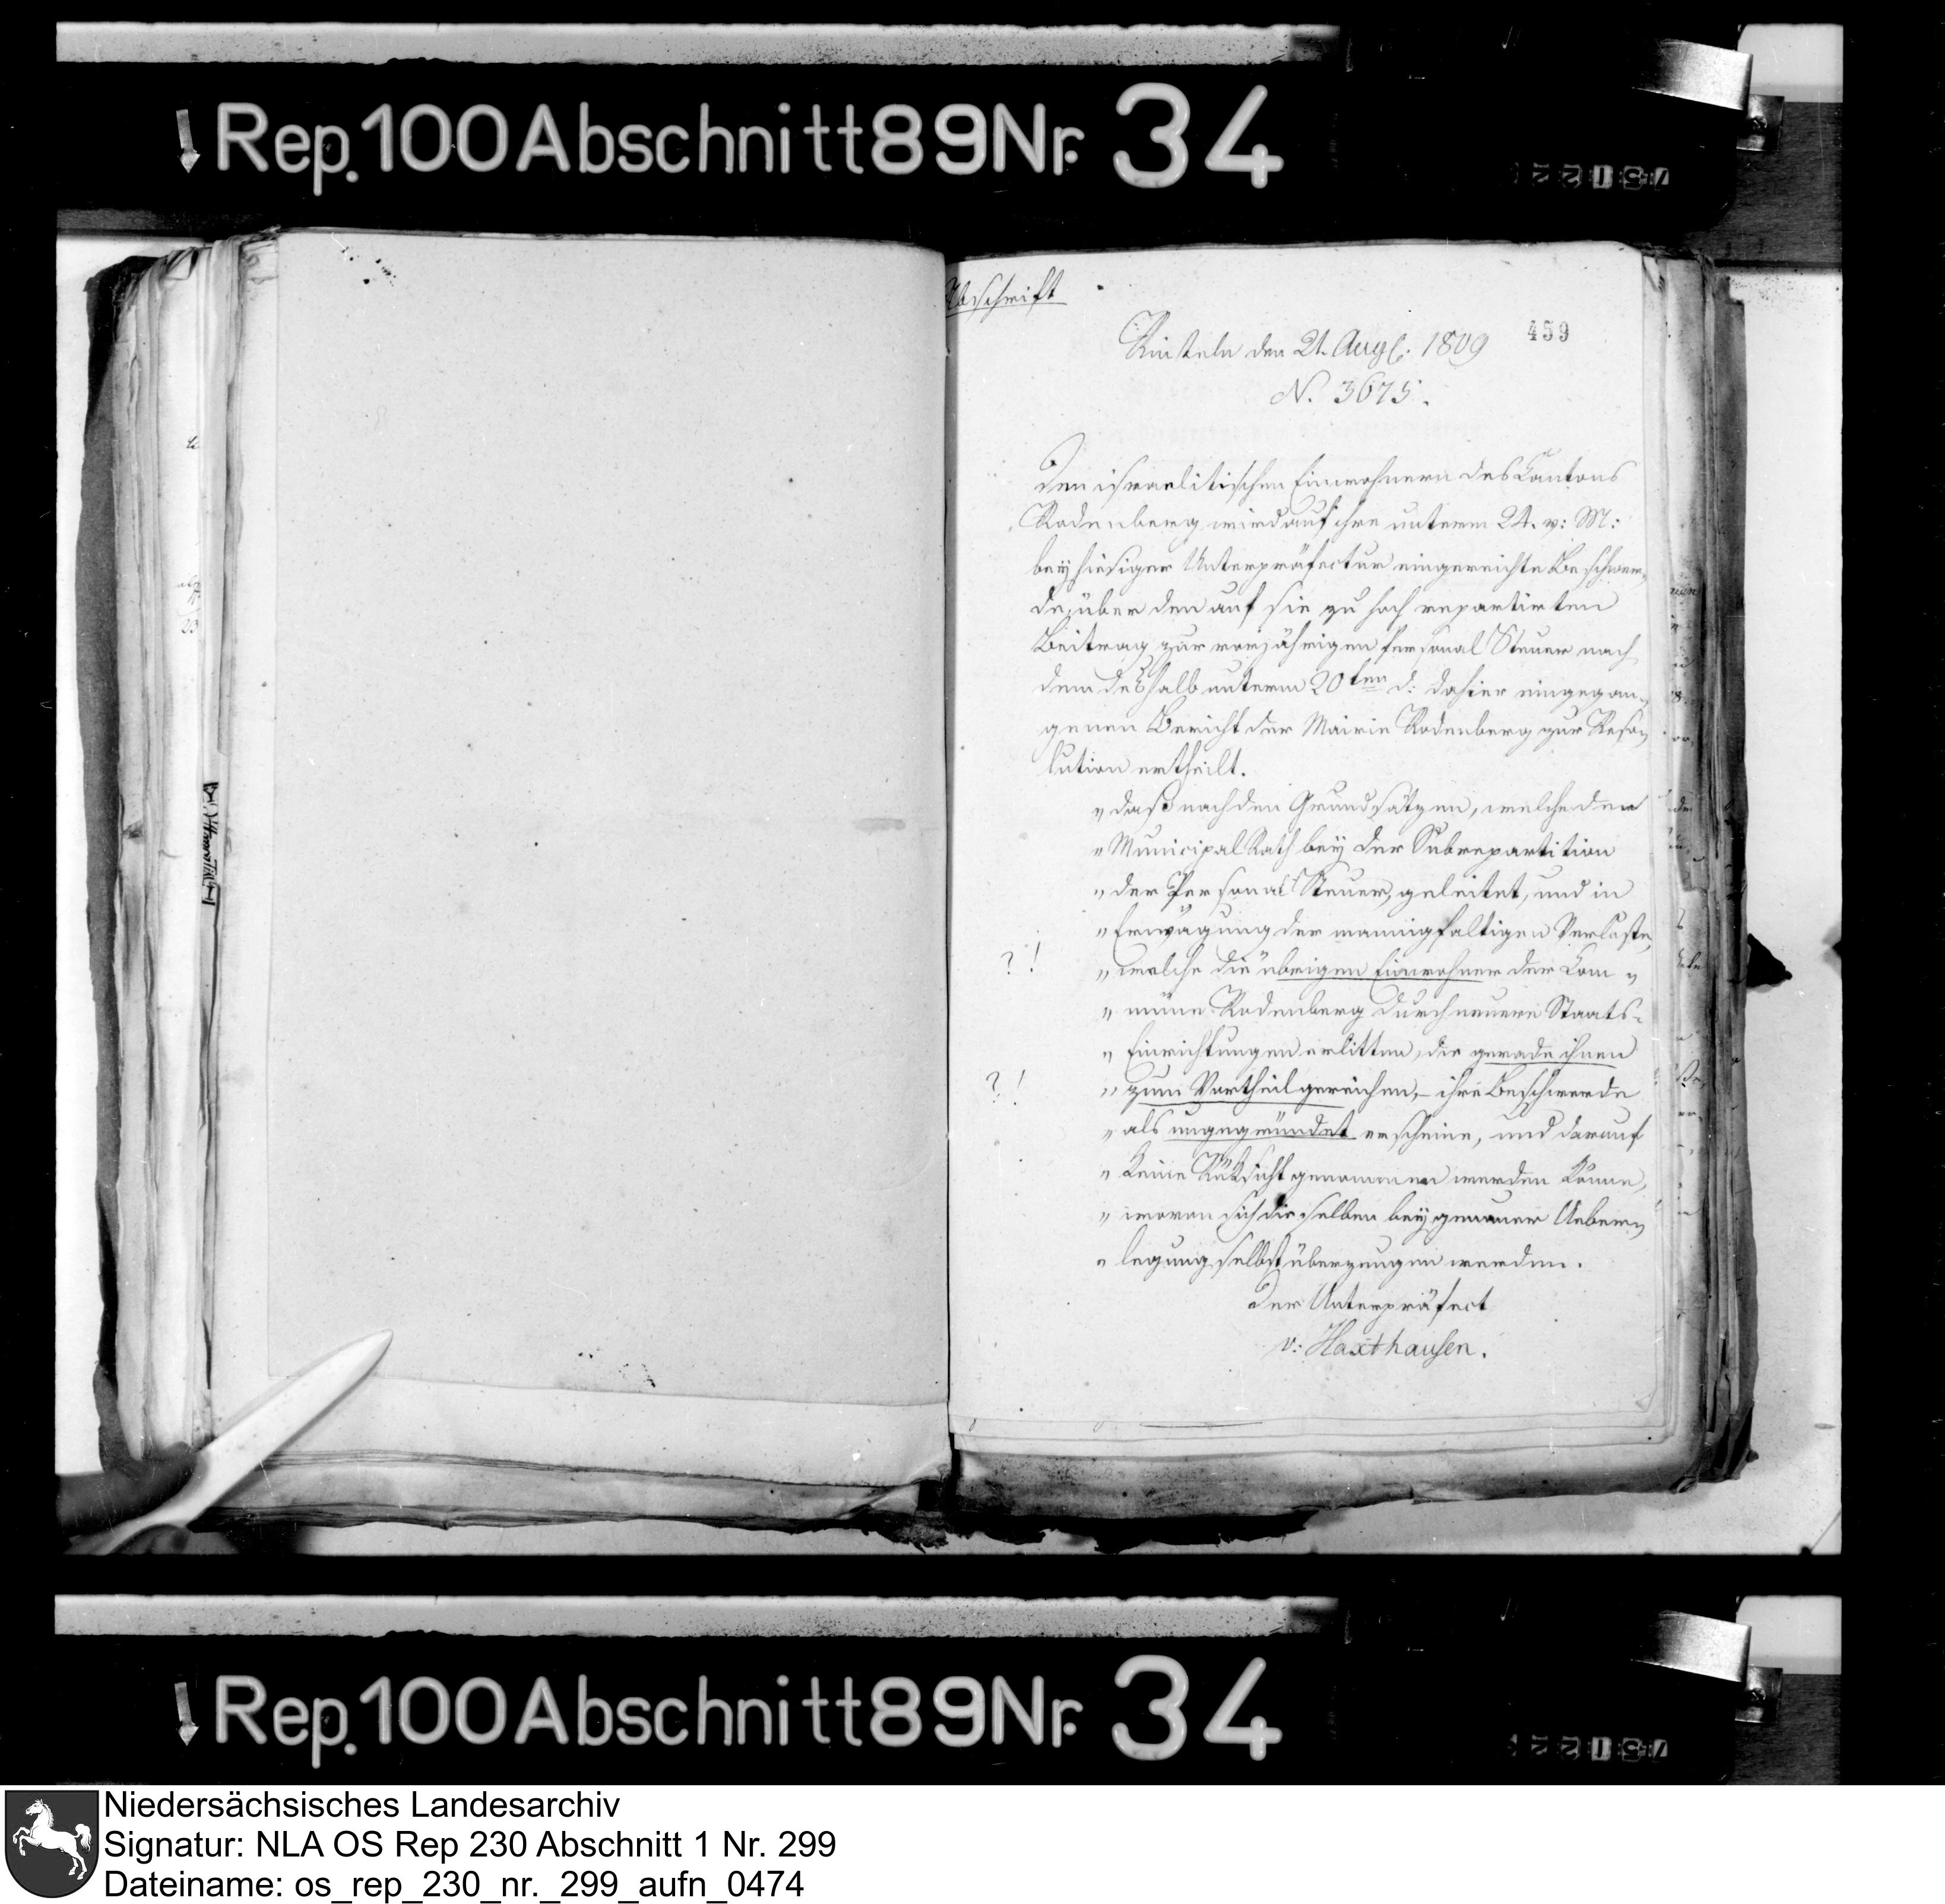 Rep. 100 Abschnitt 89 Nr. 34
Abschrift
459
Rinteln den 21. Aug. 1809
N. 3675.
Den israelitischen Einwohnern des Cantons
Rodenberg wird auf ihre unterm 24. v: M:
bey hiesiger Unterpräfectur eingereichte Beschwer„
de, über den auf sie zu hoch repartirten
Beitrag zur vorjährigen Personal Steuer nach
dem deshalb unterm 20ten d: dahier eingegan„
genen Bericht der Mairie Rodenberg zur Reso„
lution ertheilt.
„ daß nach den Grundsätzen, welche den
„ Municipal Rath bey der Subrepartition
„ der Personal Steuer, geleitet, und in
„ Erwägung der mannigfaltigen Verluste,
?! „ welche die übrigen Einwohner der Com„
„ müne Rodenberg durch neuere Staats-
„ Einrichtungen erlitten, die gerade ihnen
?! „ zum Vortheil gereichen, – ihre Beschwerde
„ als ungegründet erscheine, und darauf
„ keine Rüksicht genommen werden könne,
„ wovon sich dieselben bey genauer Ueber„
„ legung selbst überzeugen werden.
Der Unterpräfect
v: Haxthausen.
Rep. 100 Abschnitt 89 Nr. 34
Niedersächsisches Landesarchiv
Signatur: NLA OS Rep 230 Abschnitt 1 Nr. 299
Dateiname: os_rep_230_nr._299_aufn_0474